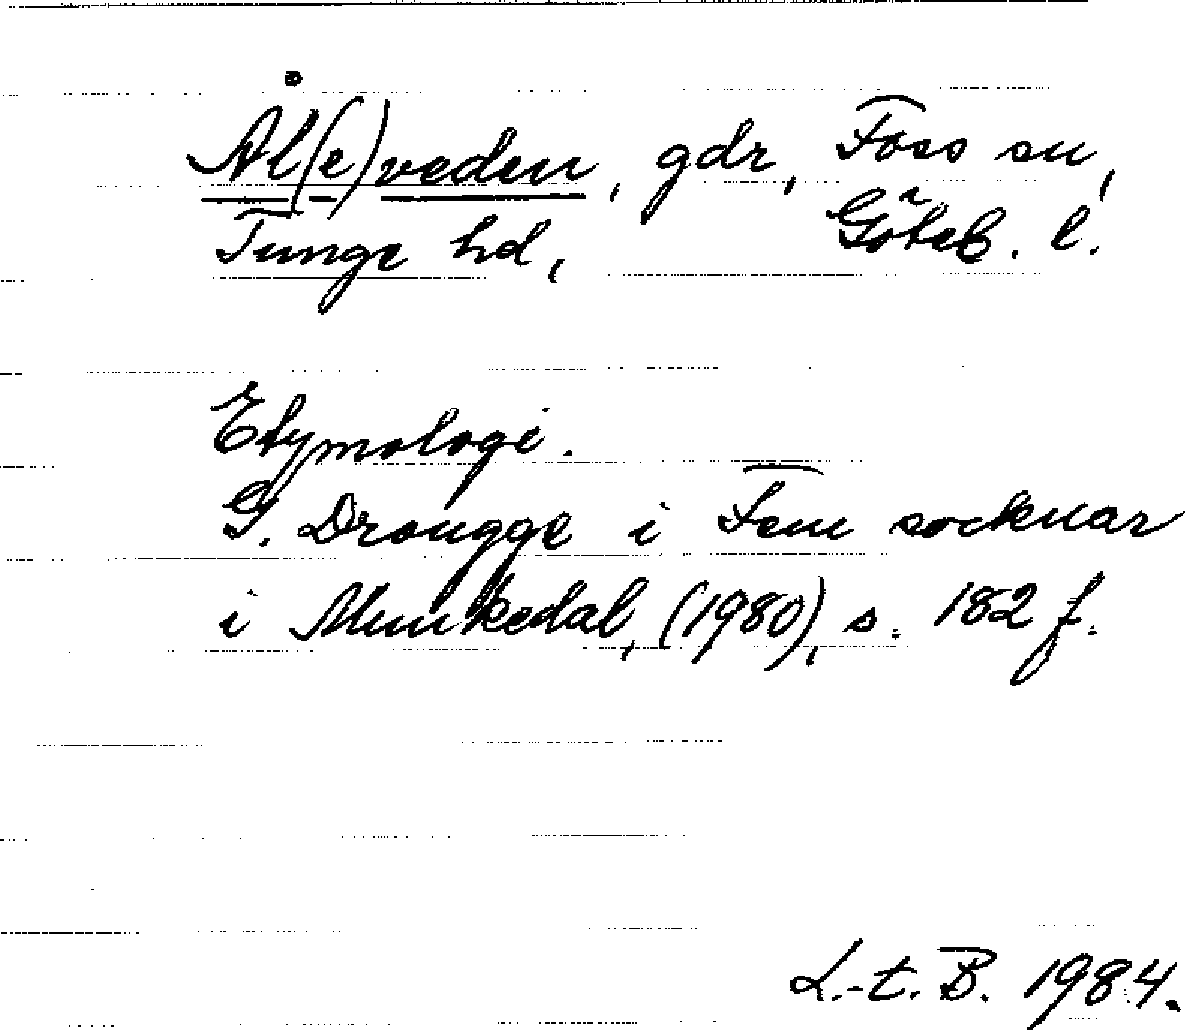 Ål(e)veden, gdr, Foss sn,
Tunge hd, Göteb. l.
Etymologi.
G. Drougge i Fem socknar
i Munkedal, (1980), s. 182 f.
L.-t. B. 1984.